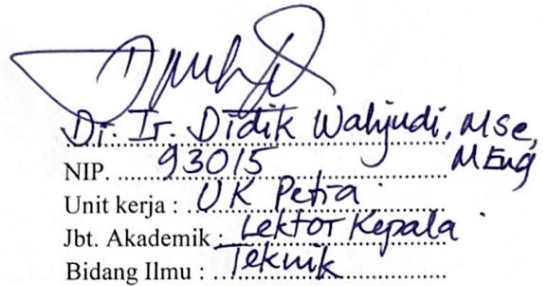 Dr. Ir. Didik Wahjudi, MSc,
MEng
NIP. 93015
Unit kerja : UK Petra
Jbt. Akademik : Lektor Kepala
Bidang Ilmu : Teknik